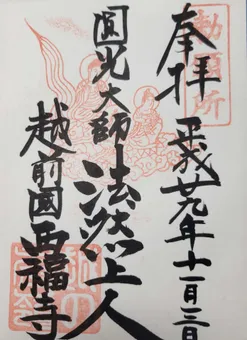 奉拝 平成廿九年十一月三日
勅願所
圓光大師 法然上人
越前國 西福寺